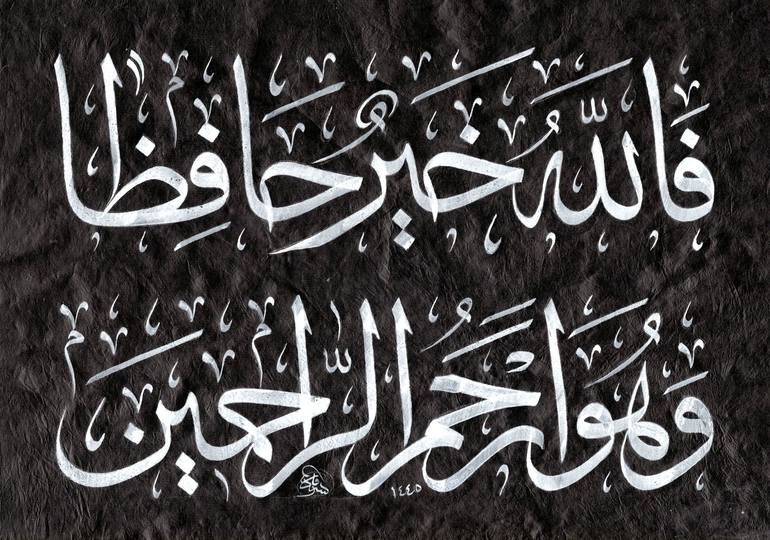 فَاللَّهُ خَيْرٌ حَافِظًا
وَهُوَ أَرْحَمُ الرَّاحِمِينَ
١٤٤٥